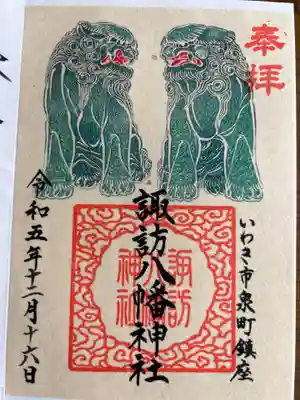 奉拝
いわき市泉町鎮座
諏訪八幡神社
諏訪
神社
令和五年十二月十六日